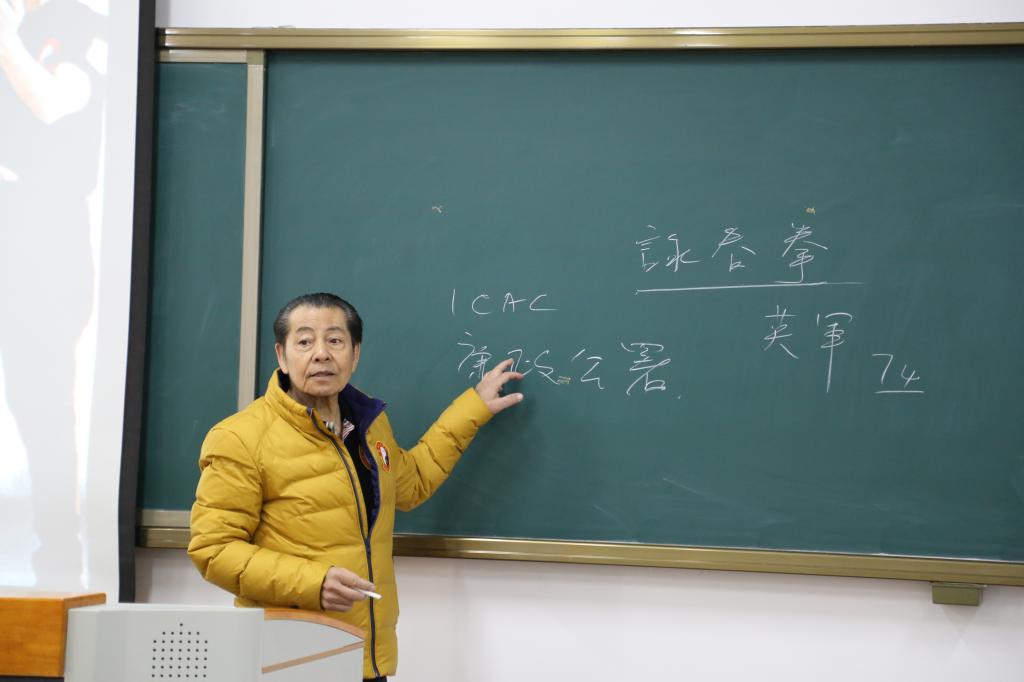 詠春拳
ICAC
廉政公署
英軍
74